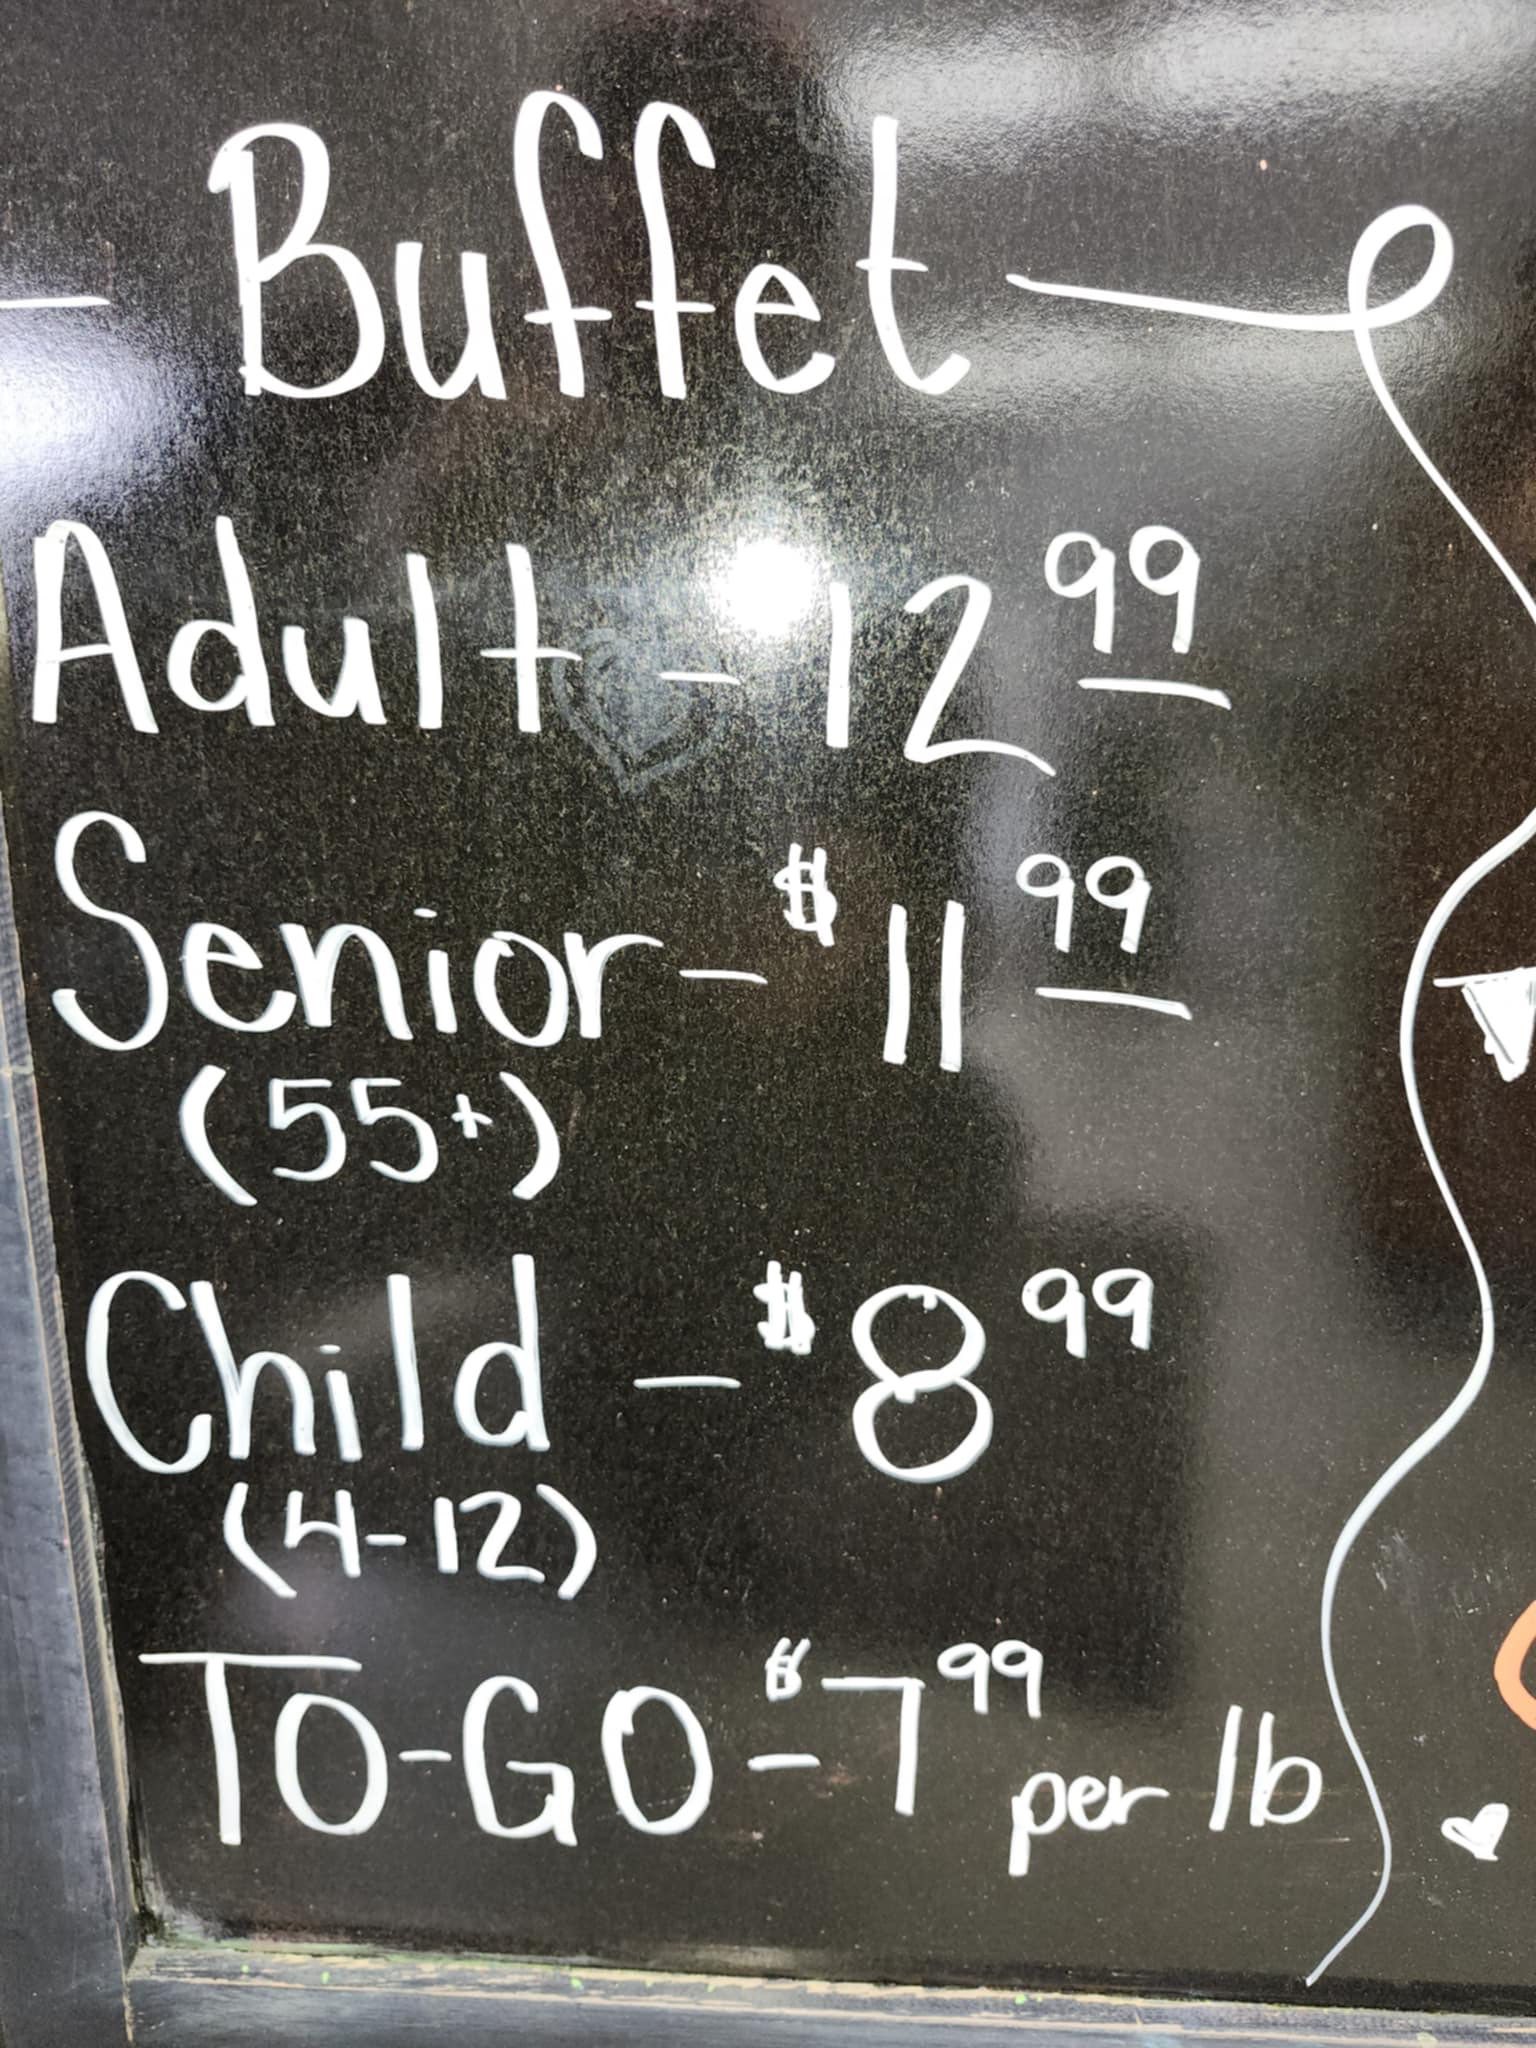 Buffet
Adult - 12 99
Senior - $11 99
(55+)
Child - $8 99
(4-12)
TO-GO - $7 99 per lb